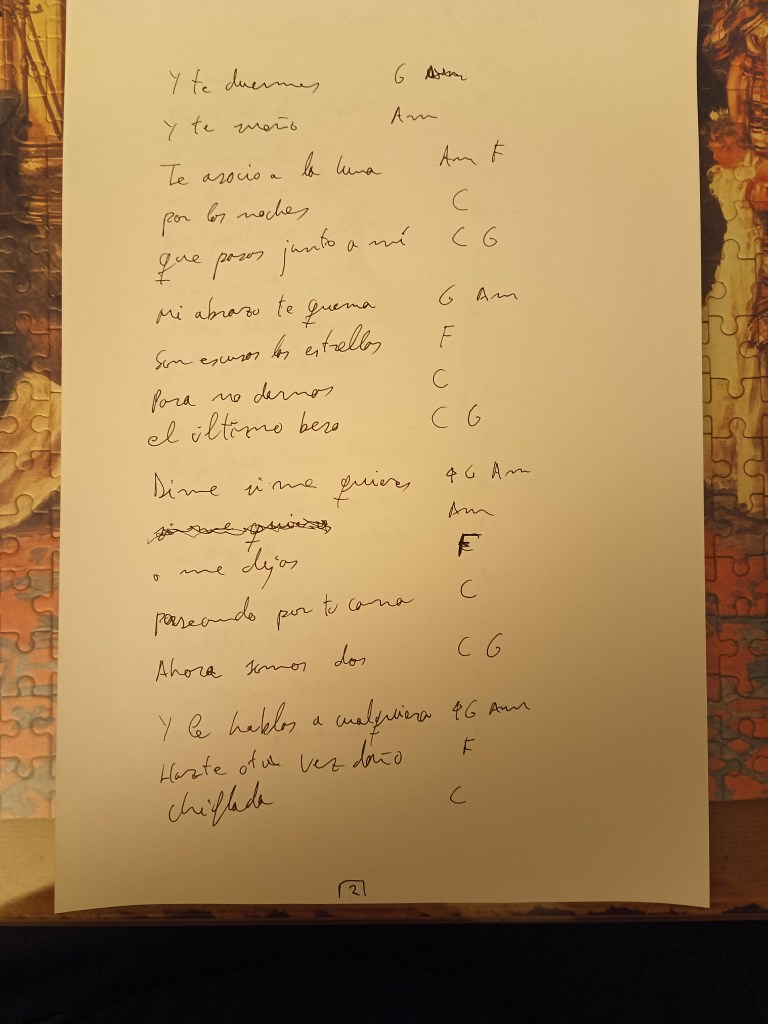 Y te duermes G
Y te sueño Am
Te asocio a la luna Am F
por las noches C
que pasas junto a mí C G
Mi abrazo te quema G Am
Son escusas las estrellas F
Para no darnos C
el último beso C G
Dime si me quieres G Am
si me quieres Am
o me dejas F
paseando por tu cama C
Ahora somos dos C G
Y le hablas a cualquiera G Am
Hazte otra vez daño F
chiflada C
2